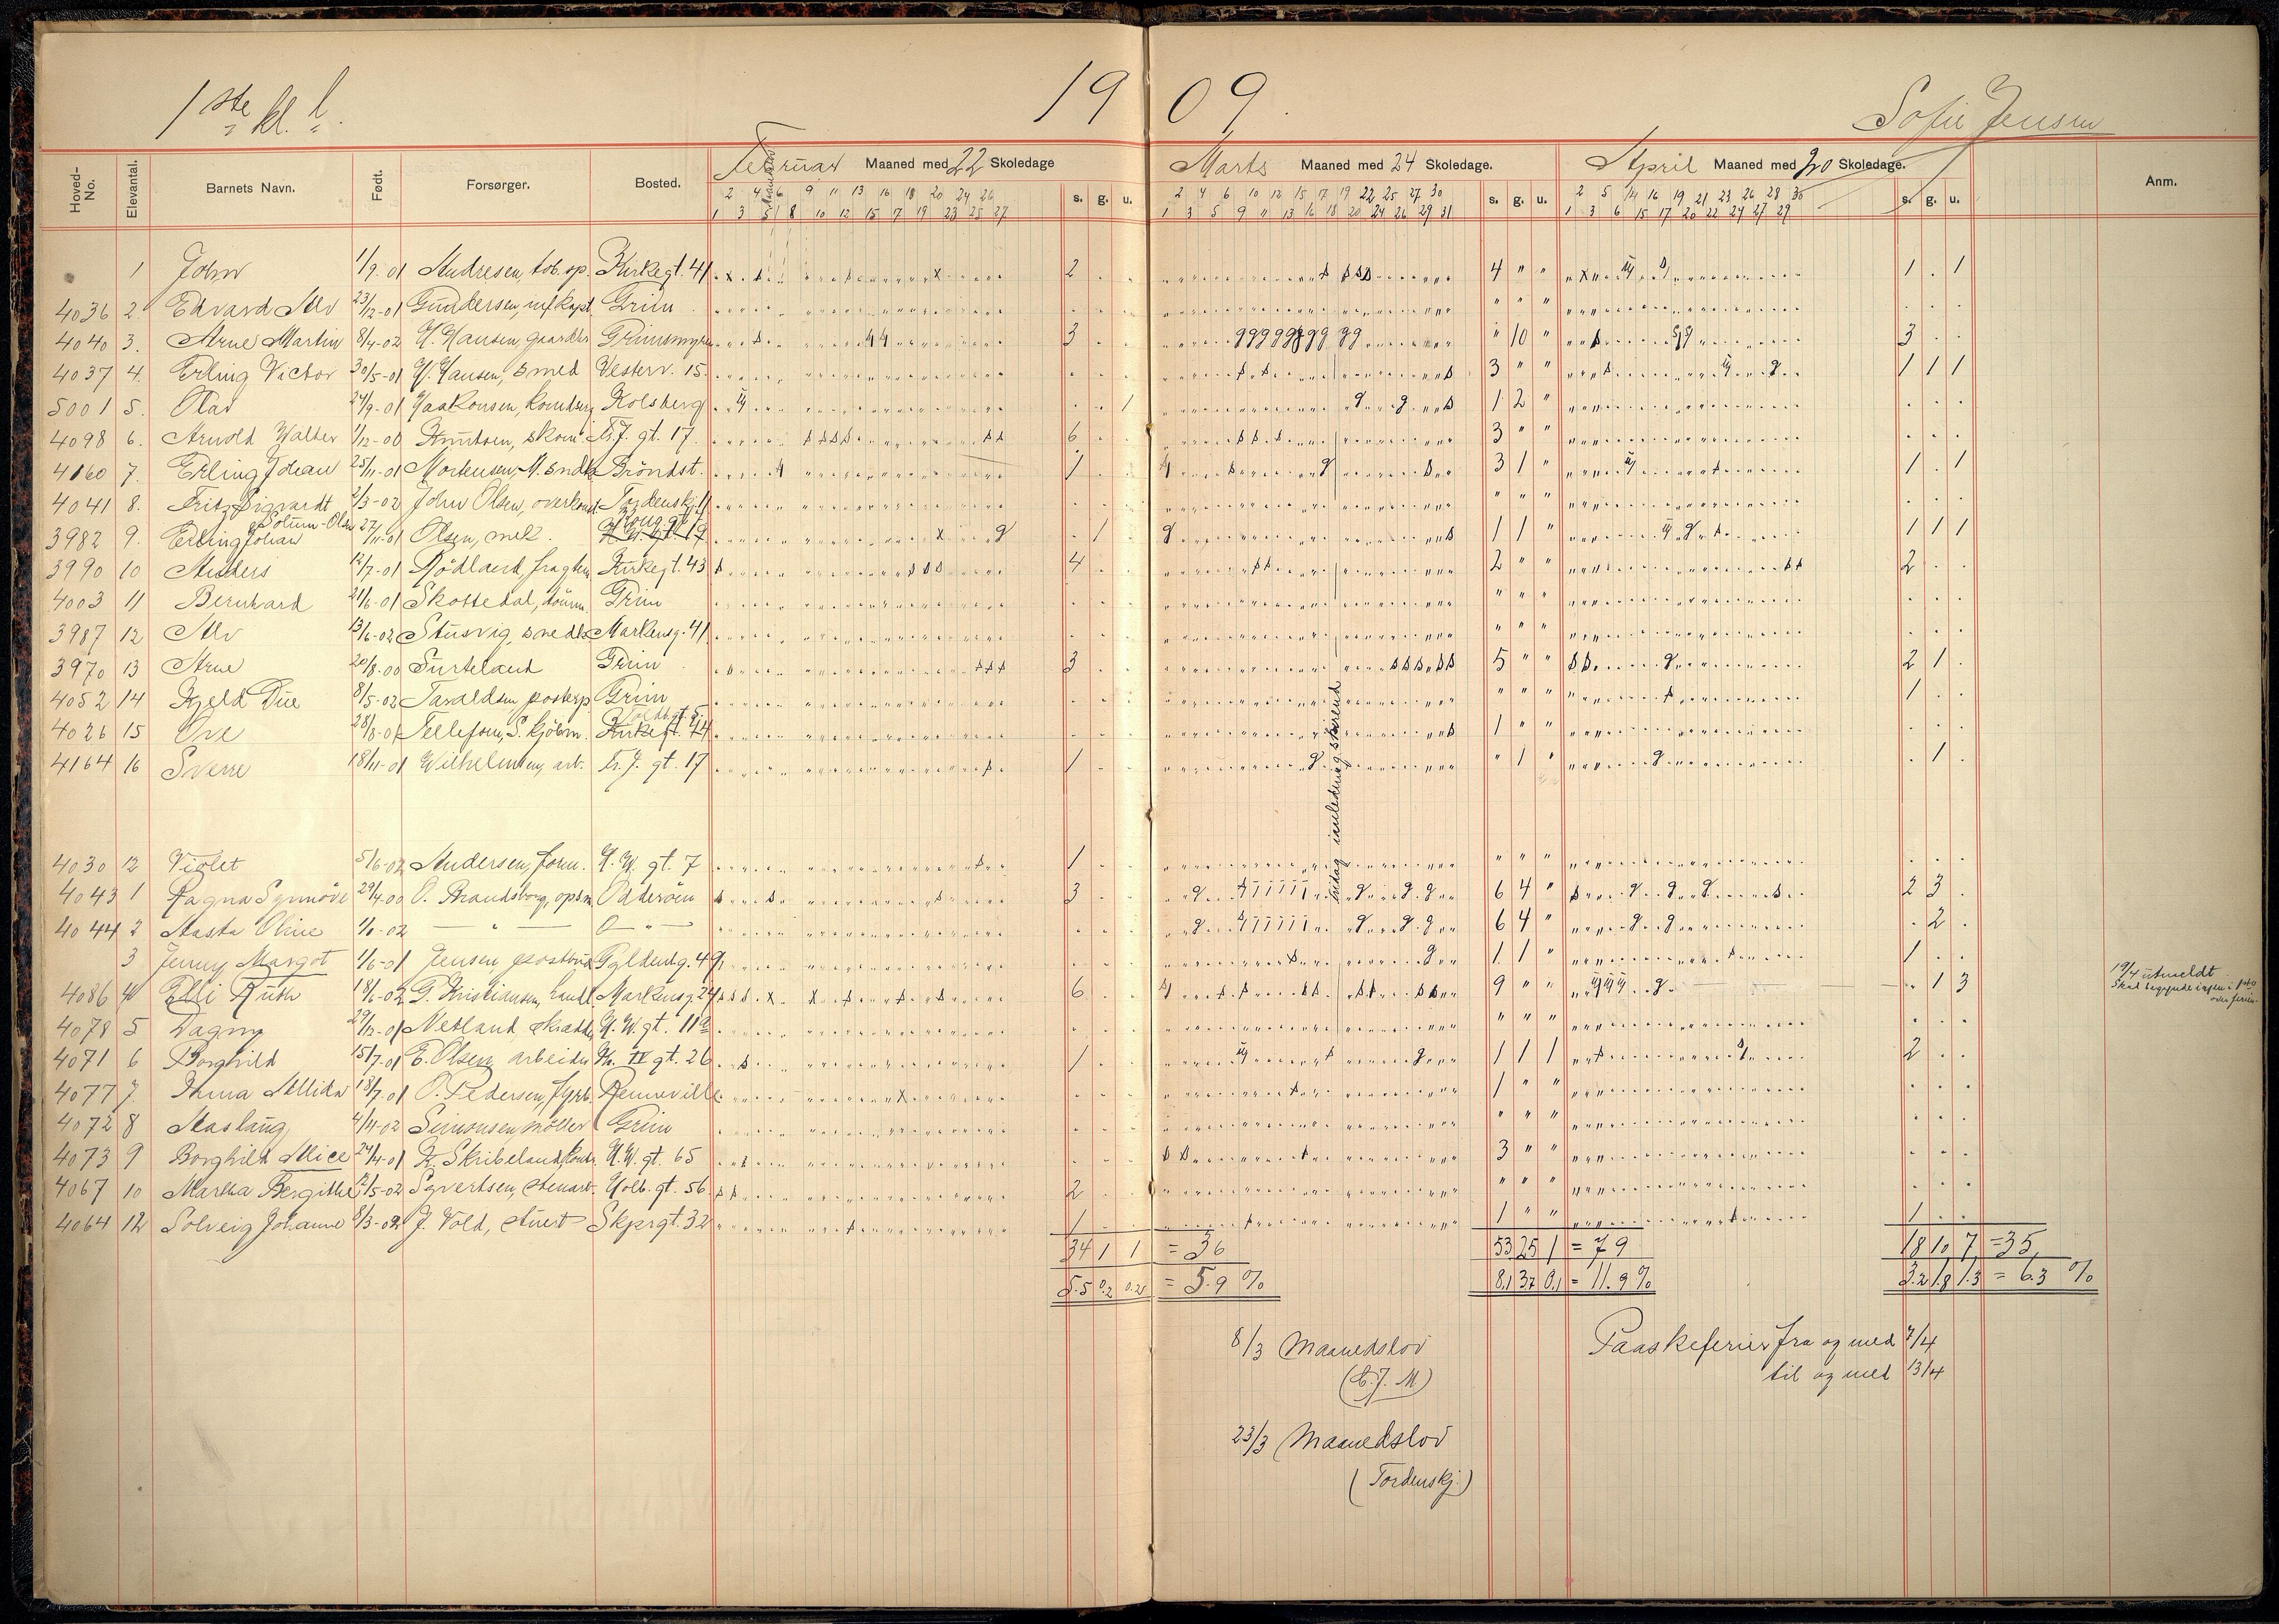 1ste kl. l.
19 09.
Sofie Jensen
Hoved-No. Elevantal. Barnets Navn. Født. Forsørger. Bosted. Februar Maaned med 22 Skoledage s. g. u. Marts Maaned med 24 Skoledage. s. g. u. April Maaned med 20 Skoledage. s. g. u. Anm.
2 4 6 9 11 13 16 18 20 24 26 2 4 6 10 12 15 17 19 22 25 27 30 2 5 14 16 19 21 23 26 28 30
1 3 5 8 10 12 15 17 19 23 25 27 1 3 5 9 11 13 16 18 20 24 26 29 31 1 3 6 15 17 20 22 24 27 29
1 John 1/9-01 Andresen, tob.sp. Kirkegt. 41 2 . . 4 " " 1 . 1
4036 2. Edvard Alv 23/12-01 Gundersen, Grim . . . " " " . . .
4040 3. Arne Martin 8/4-02 H. Hansen, Grimsmyra 3 . . " 10 " 3 . .
4037 4. Erling Victor 30/5-01 H. Hansen, smed Vesterv. 15. . . . 3 " " 1 1 1
5001 5. Olav 24/9-01 Haakonsen, Kolsberg . . 1 1 2 " . . .
4098 6. Arnold Walter 1/12-00 Knutsen, skom. Tr. J. gt. 17. 6 . . 3 " " . . .
4160 7. Erling Johan 25/11-01 Mortensen, M. Bröndst. 1 . . 3 1 " 1 . 1
4041 8. Fritz Sigvardt 2/3-02 John Olsen, Tordenskj. 11 . . . " " " . . .
Solum-Olsen
3982 9. Erling Johan 27/11-01 Olsen, . 1 . 1 1 " 1 1 1
3990 10 Anders 12/7-01 Rödland, Kirkegt. 43 4 . . 2 " " 2 . .
4003 11 Bernhard 21/6-01 Skottedal, Grim . . . " " " . . .
3987 12 Alv 13/6-02 Stusvig, Markensg. 41 . . . " " " . . .
3970 13 Arne 20/8-00 Surteland Grim 3 . . 5 " " 2 1 .
4052 14 Kjeld Due 8/5-02 Tavaldsen postexp. Grim . . . " " " 1 . .
4026 15 Ove 28/8-01 Tellefsen, S. kjöbm. Kirkegt. 44 . . . 1 " " . . .
4164 16 Sverre 18/11-01 Wilhelmsen, arb. Tr. J. gt. 17 1 . . " 1 " . 1 .
4030 12 Violet 5/6-02 Andersen, form. H. W. gt. 7 1 . . " " " . . .
4043 1 Ragna Synnöve 29/4-00 O. Strandsborg, opsm. Odderöen 3 . . 6 4 " 2 3 .
4044 2 Aasta Oline 1/1-02 — " — O — " — . . . 6 4 " . 2 .
3 Jenny Margot 1/6-01 Jensen postbud Gyldenlg. 49 . . . 1 1 " 1 . .
4086 4 Elli Ruth 18/6-02 G. Kristiansen, handl. Markensg. 24 6 . . 9 " " . 1 3 19/4 utmeldt.
Skal begynde igjen i
over ferien.
4078 5 Dagny 29/12-01 Netland H. W. gt. 11a . . . " " " . . .
4071 6 Borghild 15/7-01 E. Olsen, arbeider Kr. IV gt. 26 1 . . 1 1 1 2 . .
4077 7. Anna Allida 18/7-01 O. Pedersen, fyrb. Renneville . . . 1 " " . . .
4072 8 Aaslaug 4/4-02 Simonsen möller Grim . . . " " " . . .
4073 9 Borghild Alice 24/4-01 K. Skribeland, H. W. gt. 65 . . . 3 " " . . .
4067 10 Martha Bergithe 2/5-02 Syvertsen, stenarb. Holb. gt. 56. 2 . . " " " . . .
4064 12 Solveig Johanne 8/3-02 J. Vold, stuert Skprgt. 32 1 . . 1 " " 1 . .
34 1 1 = 36 53 25 1 = 79 18 10 7 = 35
5.5 0.2 0.2 = 5.9 % 8,1 3.7 0,1 = 11.9 % 3.2 1.8 1.3 = 6.3 %
fridag i anledning skirend
8/3 Maanedslov
(E. J. M)
23/3 Maanedslov
(Tordenskj.)
Paaskeferier fra og med 7/4
til og med 13/4